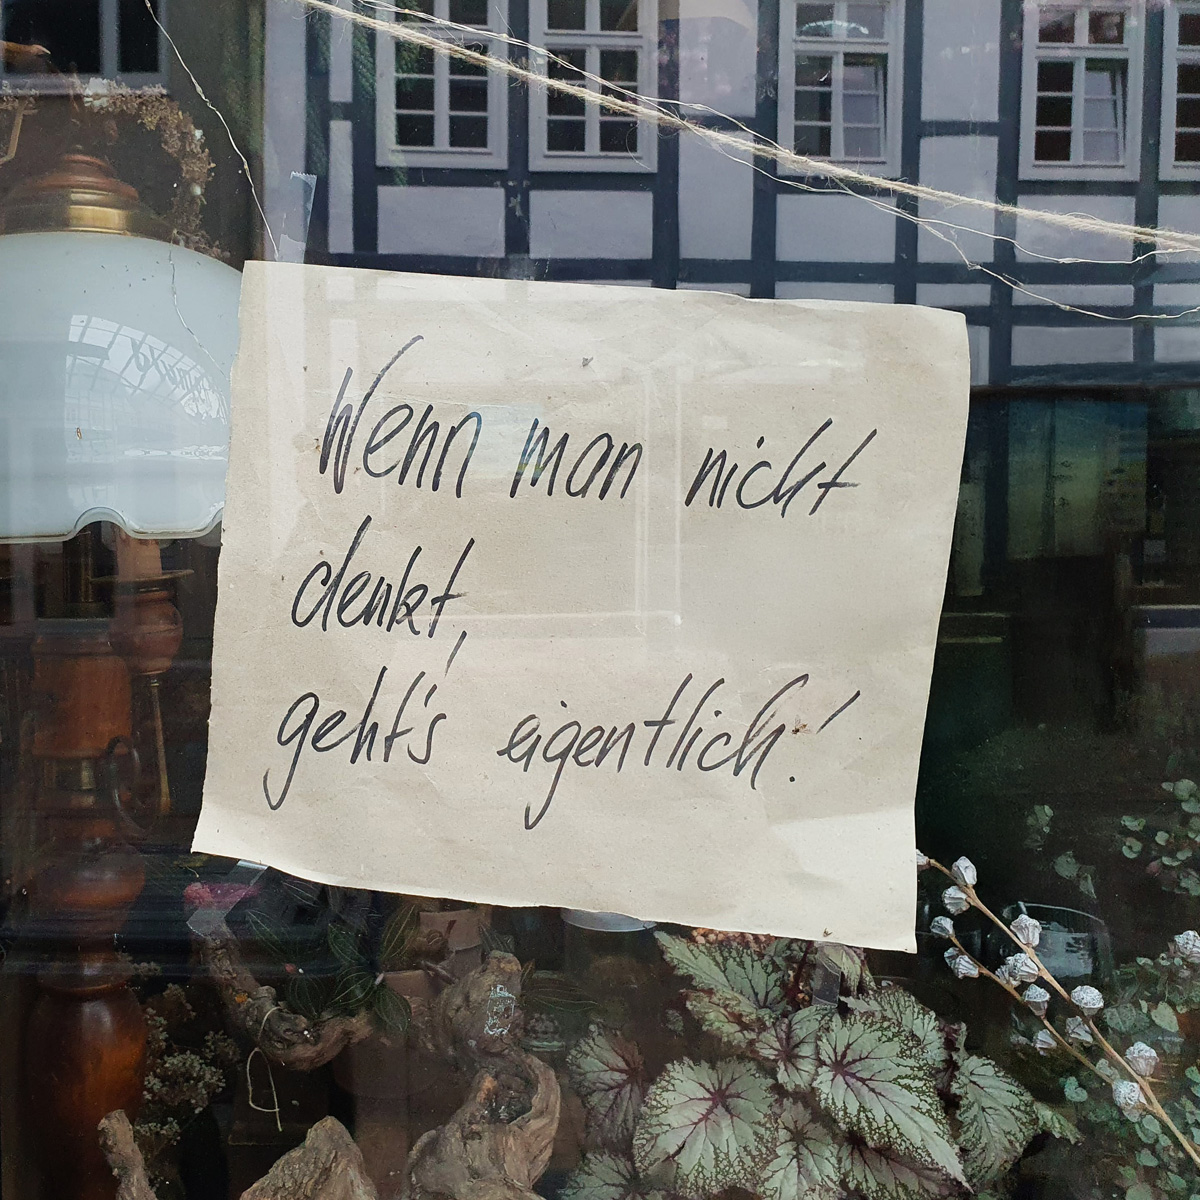 Wenn man nicht
denkt,
geht's eigentlich!